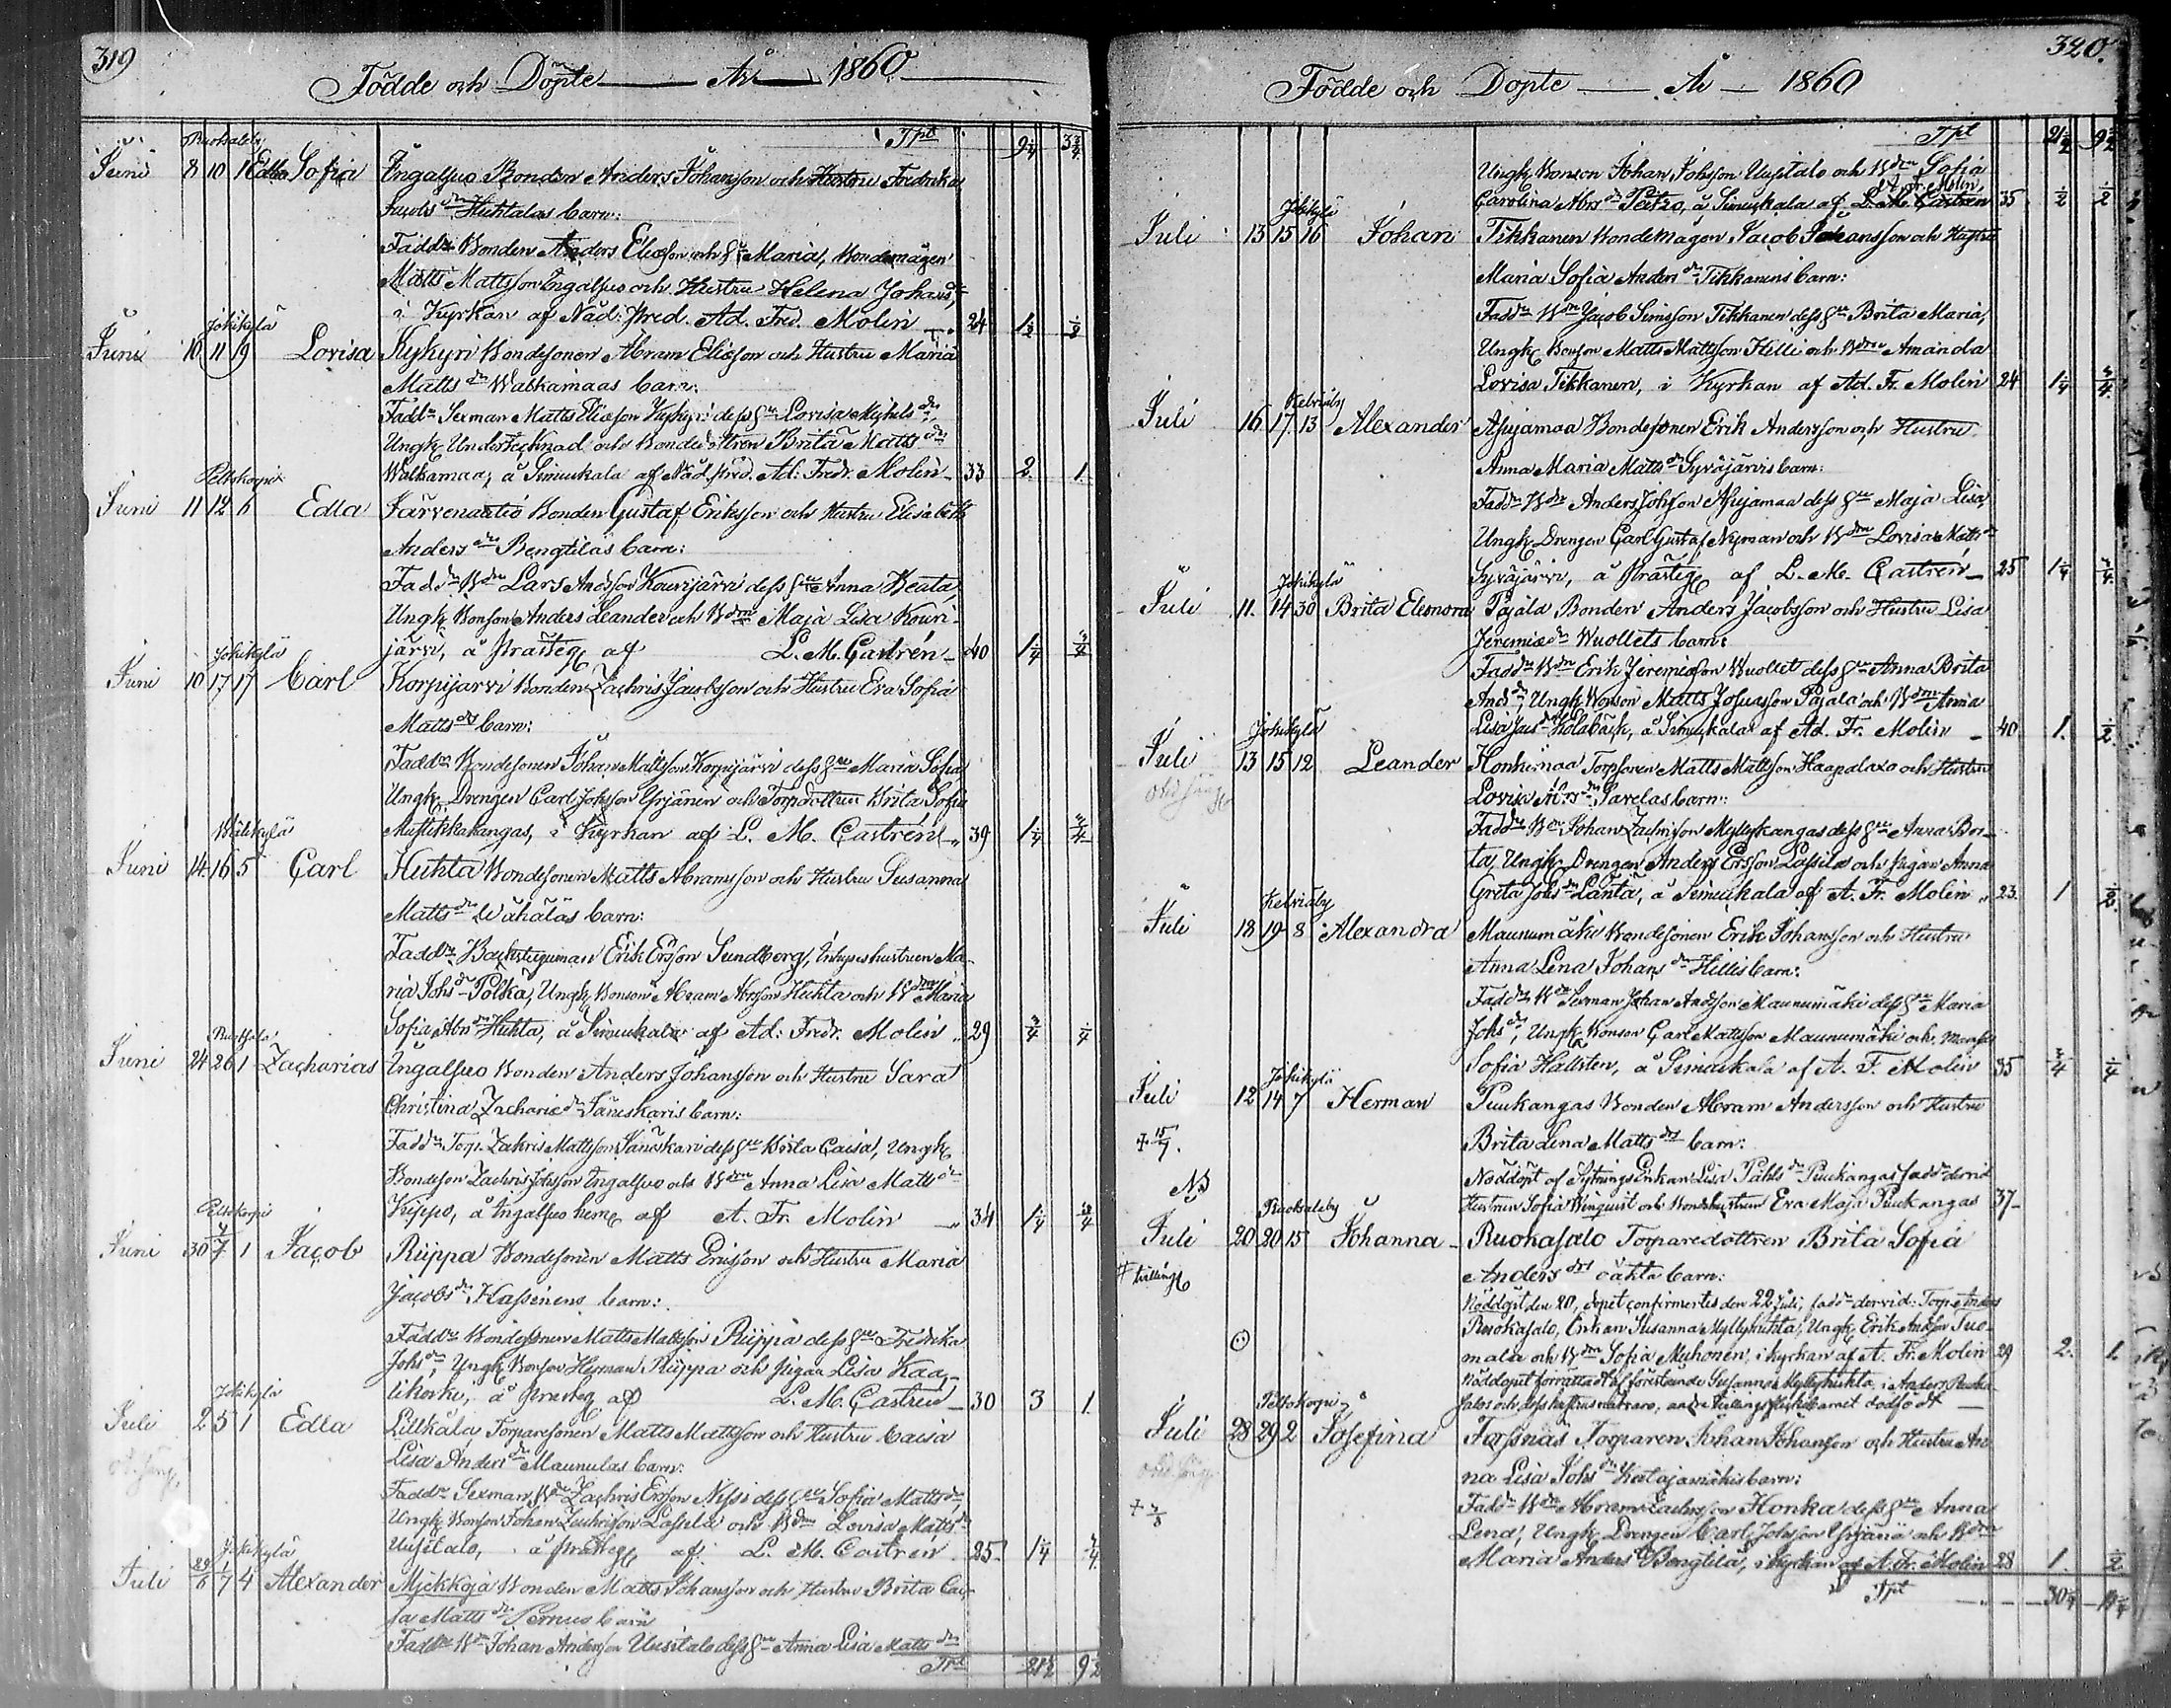 319
Födde och Döpte År 1860
Tpt 9¼ 3¾
Ruokalaby
Juni 8 10 1 Edla Sofia Ingalsuo Bonden Anders Johansson och Hustru Fredrika
Jacobs dr Huhtalas barn:
Fadd:r Bonden Anders Eliesson och Hu Maria, Bondemågen
Matts Mattsson Ingalsuo och Hustru Helena Johans dr
i Kyrkan af Nåd: pred. Ad. Fred. Molin 24 1½ ½
Jokikylä
Juni 10 11 19 Lovisa Kykyri Bondesonen Abram Eliesson och Hustru Maria
Matts dr Walkamaas barn:
Fadd:r Sexman Matts Eliesson Kykyri dess Hu Lovisa Michels dr,
Ungk Undertecknad och Bondedottren Brita Matts dr
Walkamaa, å Simukala af Nåd. pred. Ad: Fredr. Molin 33 2. 1.
Peltokorpi
Juni 11 12 6 Edla Järvenautio Bonden Gustaf Eriksson och Hustru Elisabeth
Anders dr Bengtiläs barn:
Fadd:r Bdn Lars Andsson Kouvijärvi dess Hu Anna Beata
Ungk Bonson Anders Leander och Bdm Maja Lisa Kouri-
järvi, å Prästeg af L. M. Castrén 40 1¼ ¾
Jokikylä
Juni 10 17 17 Carl Korpijarvi Bonden Zachris Jacobsson och Hustru Eva Sofia
Matts drs barn:
Fadd:r Bondesonen Johan Mattsson Korpijärvi dess Hu Maria Sofia
Ungk Drengen Carl Johsson Yrjänen och Torpdottren Brita Sofia
Mustikkakangas, i Kyrkan af L. M. Castrén 39 1¼ ¾
Wälikylä
Juni 14 16 5 Carl Huhta Bondesonen Matts Abramsson och Hustru Susanna
Matts dr Wähäläs barn:
Fadd:r Backstuguman Erik Ersson Sundberg, Inhyseshustrun Ma-
ria Johs dr Polska, Ungk Bonson Abram Abrsson Huhta och Bdm Maria
Sofia Abr dr Huhta, å Simukala af Ad: Fredr. Molin 29 ¾ ¼
Juni 24 26 1 Zacharias Ingalsuo Bonden Anders Johansson och Hustru Sara
Christina Zacharie dr Jäneskaris barn:
Fadd:r Torp. Zakris Mattsson Jäneskari dess Hu Brita Caisa, Ungk
Bondeson Zachris Johsson Ingalsuo och Bdm Anna Lisa Matts dr
Kippo, å Ingalsuo hem af A. Fr. Molin 34 1¼ ¾
Peltokorpi
Juni 30 1/7 1 Jacob Riippa Bondesonen Matts Ericsson och Hustru Maria
Jacobs dr Hassinens barn:
Fadd:r Bondesonen Matts Mattsson Riippa dess Hu Fredrika
Johs dr, Ungk Bonson Herman Riippa och pigan Lisa Kaa-
likorki, å Prästeg af L. M. Castrén 30 3 1.
Jokikylä
Juli 2 5 1 Edla Lillkåla Torparesonen Matts Mattsson och Hustru Caisa
Lisa Anders dr Maunulas barn:
Fadd:r Sexman Bdn Zachris Ersson Nissi dess Hu Sofia Matts dr,
Ungk Bonson Johan Zachrisson Lassila och Bdm Lovisa Matts dr
Uusitalo, å Prästeg af: L. M. Castrén 25 1¼ ¾
Jokikylä
Juli 29/6 1/7 4 Alexander Myckkoja Bonden Matts Johansson och Hustru Brita Cai-
sa Matts dr Pernus barn
Fadd:r Bdn Johan Andersson Uusitalo dess Hu Anna Lisa Matts dr
Tpt 21½ 9½
320.
Födde och Döpte År 1860
Tpt 21½ 9½
Ungk Bonson Johan Johsson Uusitalo och Bdm Sofia
Carolina Abrs dr Peitzo, å Simukala af Ad. Fr. Molin 35 ½ ½
Jokikylä
Juli 13 15 16 Johan Tikkanen Bondemågen Jacob Johansson och Hustru
Maria Sofia Anders dr Tikkanens barn:
Fadd:r Bdn Jacob Simsson Tikkanen dess Hu Brita Maria,
Ungk Bonson Matts Mattsson Hilli och Bdm Amanda
Lovisa Tikkanen, i Kyrkan af Ad. Fr. Molin 24 1¼ ¾
Kelviåby
Juli 16 17 13 Alexander Apujamaa Bondesonen Erik Andersson och Hustru
Anna Maria Matts dr Syväjärvis barn:
Fadd:r Bdn Anders Johsson Apujamaa dess Hu Maja Lisa,
Ungk Drengen Carl Gustaf Nyman och Bdm Lovisa Matts dr
Syväjärvi, å Prästeg af L. M. Castrén 25 1¼ ¾
Jokikylä
Juli 11. 14 30 Brita Eleonora Pajala Bonden Anders Jacobsson och Hustru Lisa
Jeremiæ dr Wuollets barn:
Fadd:r Bdn Erik Jeremiæson Wuollet dess Hu Anna Brita
And dr, Ungk Bonson Matts Josuasson Pajala och Bdm Anna
Lisa Jacs dr Kolabäck, å Simukala af Ad. Fr. Molin 40 1. ½
Jokikylä
Juli 13 15 12 Leander Honkimaa Torpsonen Matts Mattsson Haapalaxo och Hustru
Lovisa Abrs dr Savelas barn:
Fadd:r Bdn Johan Zachrisson Myllykangas dess Hu Anna Bri-
ta, Ungk Drengen Anders Ersson Lassila och pigan Anna
Greta Johs dr Lanta, å Simukala af A. Fr. Molin 23. 1 ½
Kelviåby
Juli 18 19 8 Alexandra Maunumäki Bondesonen Erik Johansson och Hustru
Anna Lena Johans dr Hillis barn:
Fadd:r Bdn Sexman Johan Andsson Maunumäki dess Hu Maria
Johs dr, Ungk Bonson Carl Mattsson Maunumäki och Mamsell
Sofia Hallsten, å Simukala af A. F. Molin 35 ¾ ¼
Jokikylä
Juli 12 14 7 Herman Puukangas Bonden Abram Andersson och Hustru
† 15/7. Brita Lena Matts drs barn:
NB Nöddöpt af Sytnings Enkan Lisa Påhls dr Puukangas fadd:r dervid
Hustrun Sofia Winquist och Bondehustrun Eva Maja Puukangas 37
Ruokalaby
Juli 20 20 15 Johanna Ruokasalo Torparedottren Brita Sofia
tvilling Anders drs oäkta barn:
Nöddöpt den 20, dopet confirmertes den 22 Juli, fadd:r dervid: Torp Anders
Ruokasalo, Enkan Susanna Myllyhuhta, Ungk Erik Andsson Tuo-
mala och Bdm Sofia Muhonen, i Kyrkan af A. Fr. Molin 29 2. 1.
Nöddopet förrättadt af förestående Susanna Myllyhuhta, i Anders Ruoka-
salos och dess hustrus närvaro, andra tvillings flickebarnet dödfödt
Peltokorpi
Juli 28 29 2 Josefina Forsnäs Torparen Johan Johansson och Hustru An-
na Lisa Johs dr Katajamäkis barn:
Fadd:r Bdn Abram Zachrisson Honka dess Hu Anna
Lena, Ungk Drengen Carl Johsson Yrjänä och Bdm
Maria Anders dr Bengtilä, i Kyrkan af A. Fr. Molin 28 1. ½
Tpt 30¼